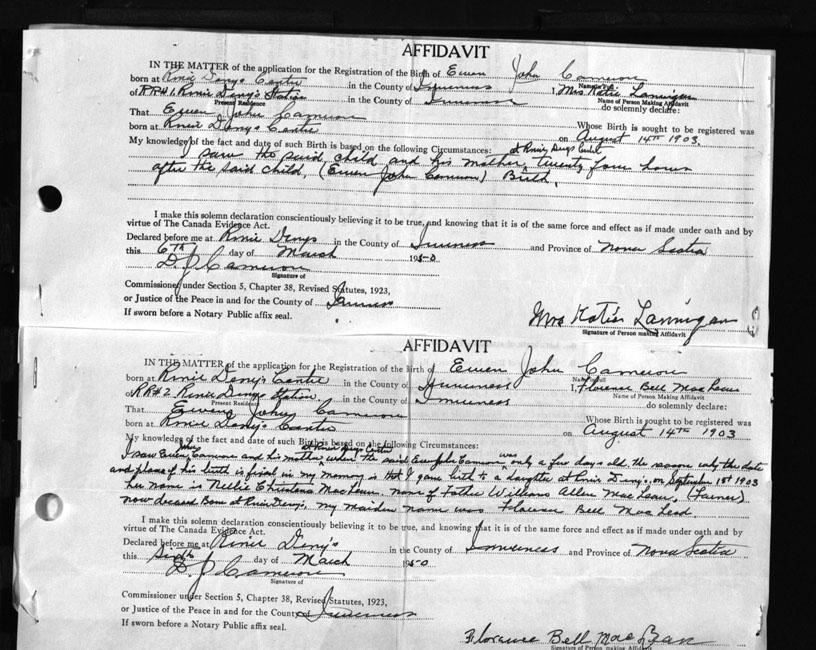 AFFIDAVIT
IN THE MATTER of the application for Registration of the Birth of Ewen John Cameron
Name in full
born at River Denys Centre in the County of Inverness I, Mrs Katie Lannigan
Name of Person Making Affidavit
of RR#1. River Denys Station in the County of Inverness do solemnly declare:
Present Residence
That Ewen John Cameron Whose Birth is sought to be registered was
born at River Denys Centre on August 14TH 1903.
My knowledge of the fact and date of such Birth is based on the following Circumstances: at River Denys Centre
I saw the said child and his mother, twenty four hours
after the said child, (Ewen John Cameron) Birth.
I make this solemn declaration conscientiously believing it to be true, and knowing that it is of the same force and effect as if made under oath and by
virtue of The Canada Evidence Act.
Declared before me at River Denys in the County of Inverness and Province of Nova Scotia
this 6TH day of March 1950
D. J. Cameron
Signature of
Commissioner under Section 5, Chapter 38, Revised Statutes, 1923,
or Justice of the Peace in and for the County of Inverness
If sworn before a Notary Public affix seal.
Mrs Katie Lannigan
Signature of Person making Affidavit
AFFIDAVIT
IN THE MATTER of the application for Registration of the birth of Ewen John Cameron
Name in full
born at River Deny's Centre in the County of Inverness I, Florence Bell MacLean
Name of Person Making Affidavit
of RR#2. River Denys Station in the County of Inverness do solemnly declare:
Present Residence
That Ewen John Cameron Whose Birth is sought to be registered was
born at River Deny's Centre on August 14TH 1903
My knowledge of the fact and date of such Birth is based on the following Circumstances:
at River Denys Centre
I saw Ewen John Cameron and his mother when the said Ewen John Cameron was only a few days old. the reason why the date
and place of his birth is fixed in my memory is that I gave birth to a daughter at River Deny's, on September 1st 1903
her name is Nellie Christena MacLean, name of Father William Allen MacLean, (Farmer)
now deceased Born at River Deny's, my maiden name was Florence Bell MacLeod
I make this solemn declaration conscientiously believing it to be true, and knowing that it is of the same force and effect as if made under oath and by
virtue of The Canada Evidence Act.
Declared before me at River Deny's in the County of Inverness and Province of Nova Scotia
this Sixth day of March 1950
D. J. Cameron
Signature of
Commissioner under Section 5, Chapter 38, Revised Statutes, 1923,
or Justice of the Peace in and for the County of Inverness
If sworn before a Notary Public affix seal.
Florence Bell MacLean
Signature of Person making Affidavit